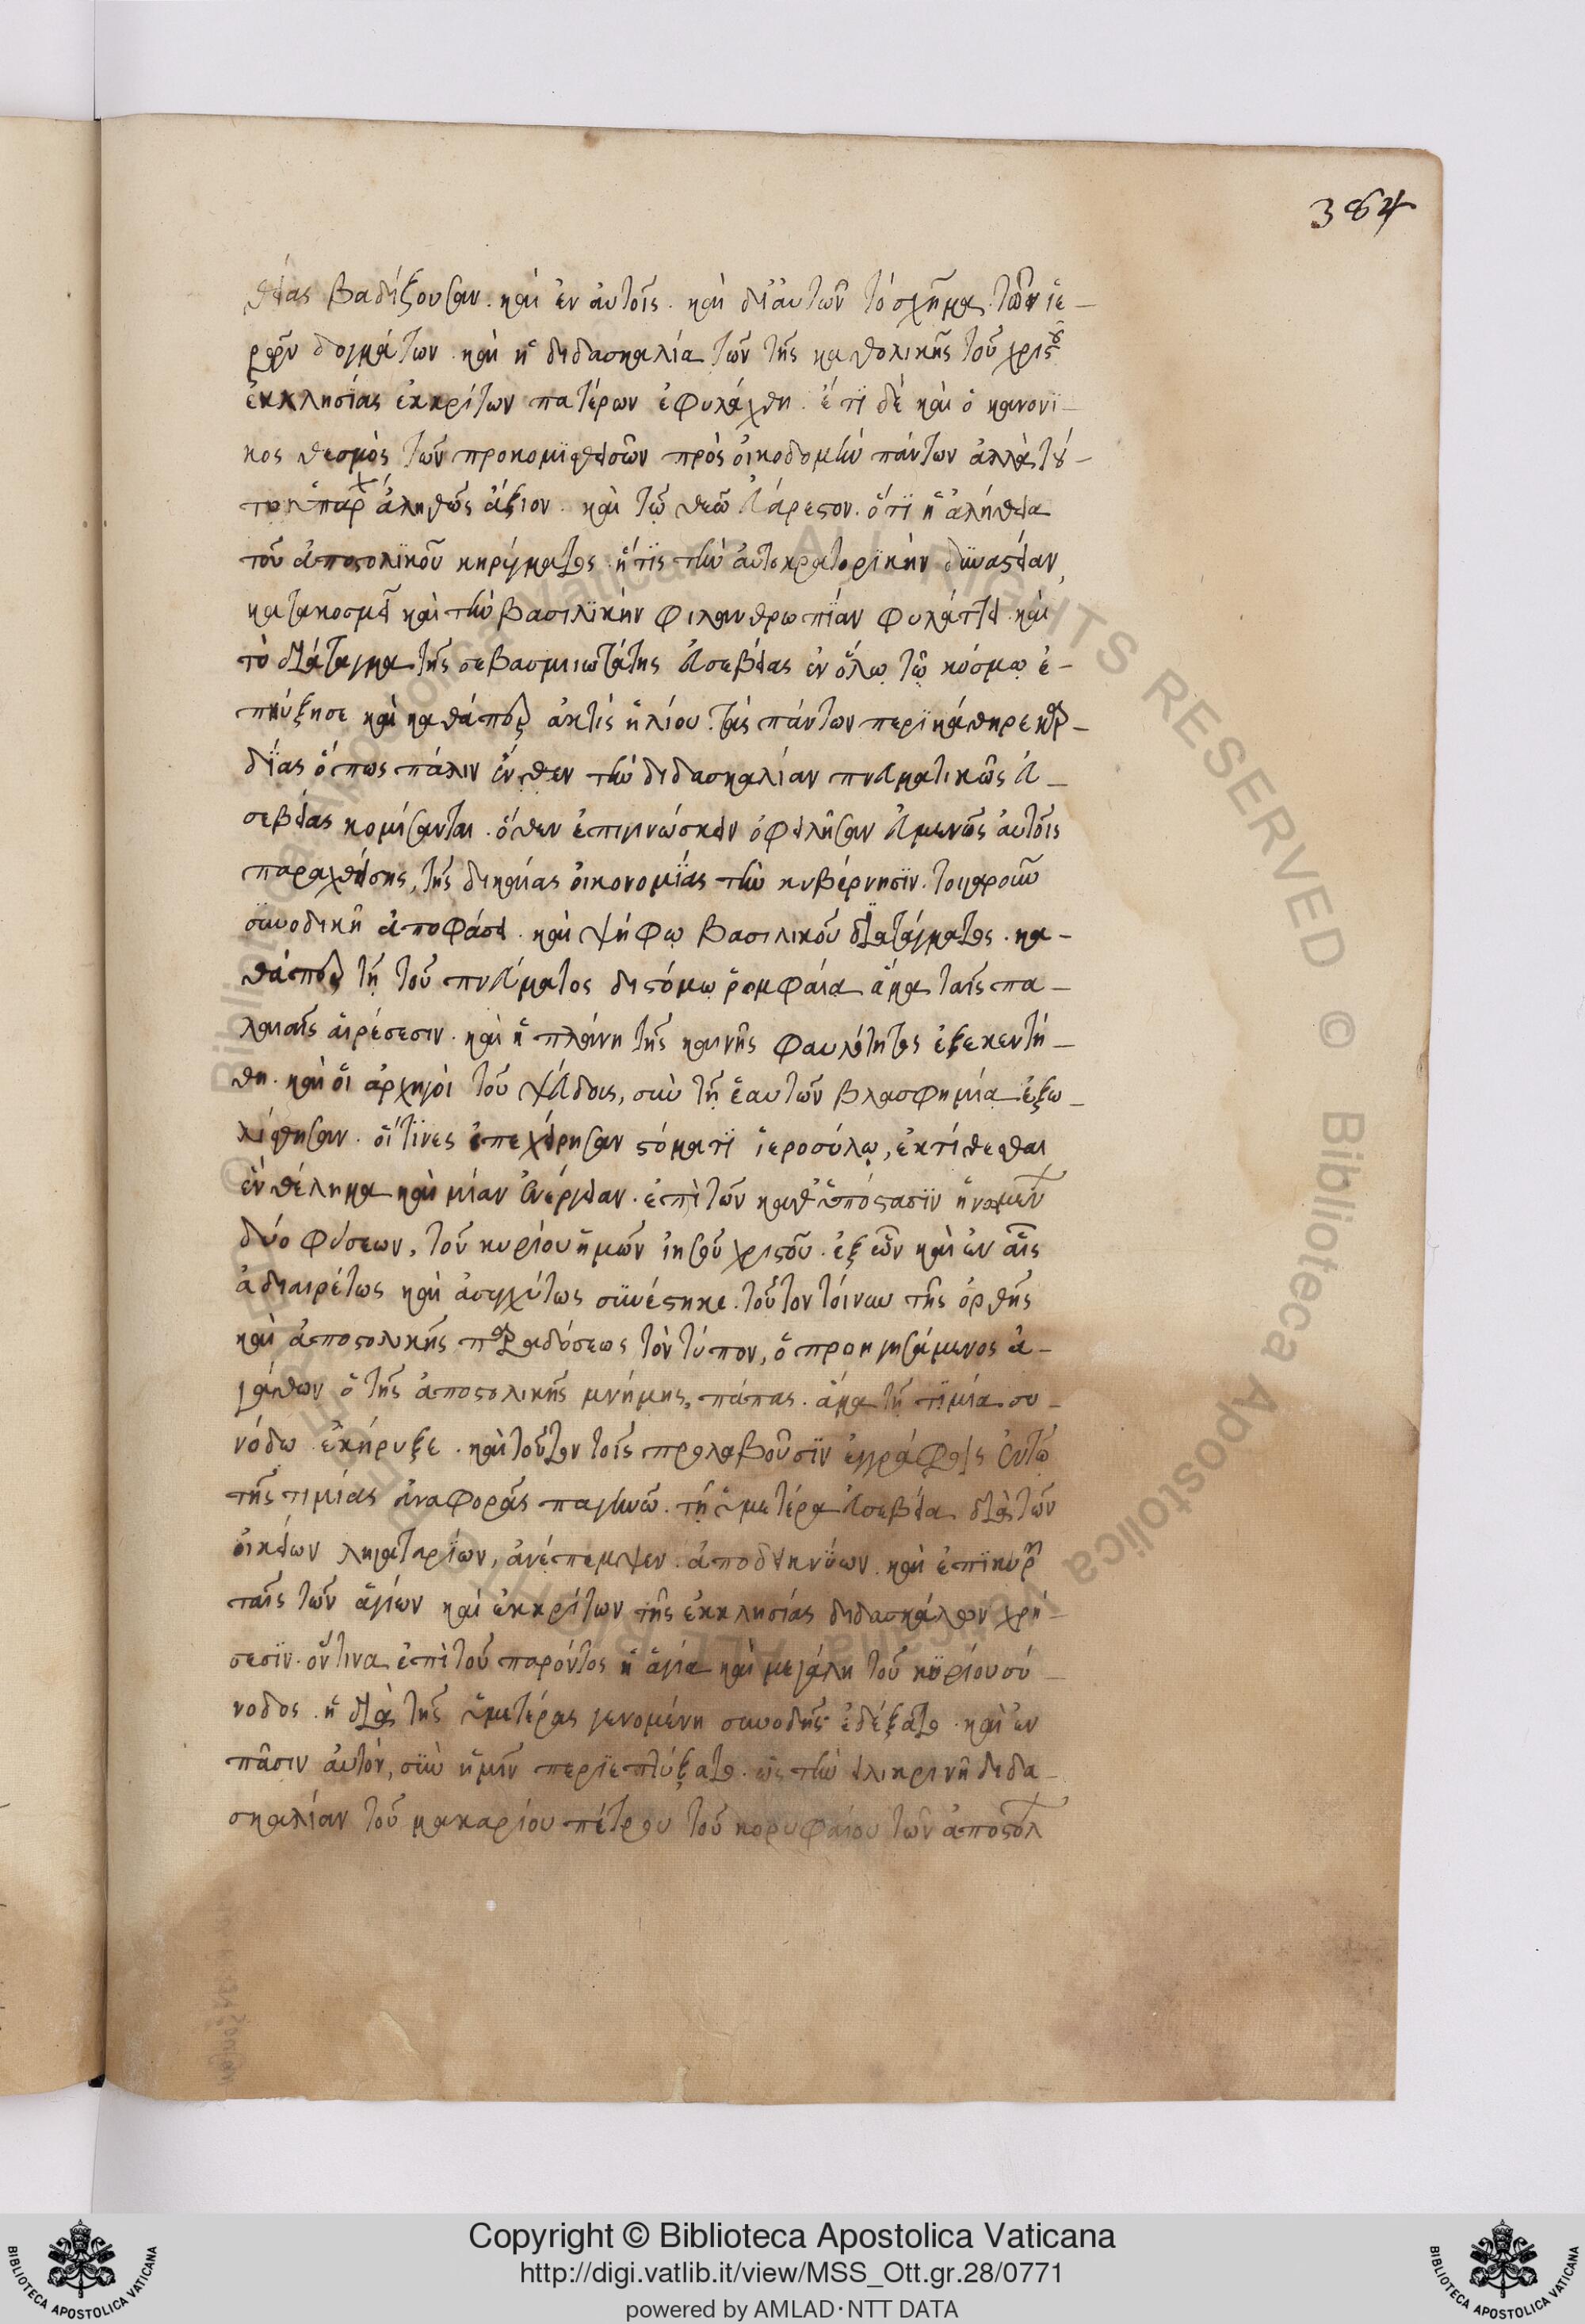 384
θείας βαδίζουσαν. καὶ ἐν αὐτοῖς. καὶ δι' αὐτῶν τὸ σχῆμα τῶν ἱε-
ρῶν δογμάτων. καὶ ἡ διδασκαλία τῶν τῆς καθολικῆς τοῦ χριστοῦ
ἐκκλησίας ἐκκρίτων πατέρων ἐφυλάχθη. ἔτι δὲ καὶ ὁ κανονι-
κος θεσμὸς τῶν προκομισθεισῶν πρὸς οἰκοδομὴν πάντων ἀλλὰ τού-
το ὑπάρχει ἀληθῶς ἄξιον. καὶ τῷ θεῷ εὐάρεστον. ὅτι ἡ ἀλήθεια
τοῦ ἀποστολικοῦ κηρύγματος. ἥτις τὴν αὐτοκρατορικὴν δυναστείαν,
κατακοσμεῖ καὶ τὴν βασιλικὴν φιλανθρωπίαν φυλάττει. καὶ
τὸ διάταγμα τῆς σεβασμιωτάτης εὐσεβείας ἐν ὅλῳ τῷ κόσμῳ ἐ-
πηύξησε καὶ καθάπερ ἀκτὶς ἡλίου. τὰς πάντων περικάθηρε καρ-
δίας ὅπως πάλιν ἔνθεν τὴν διδασκαλίαν πνευματικῶς εὐ-
σεβείας κομίσωνται. ὅθεν ἐπιγινώσκειν ὀφείλησαν εὐμενῶς αὐτοῖς
παραχθείσης, τῆς δικαίας οἰκονομίας τὴν κυβέρνησιν. τοιγαροῦν
συνοδικῇ ἀποφάσει. καὶ ψήφῳ βασιλικοῦ διατάγματος. κα-
θάπερ τῇ τοῦ πνεύματος διστόμῳ ῥομφαία ἅμα ταῖς πα-
λαιαῖς αἱρέσεσιν. καὶ ἡ πλάνη τῆς καινῆς φαυλότητος ἐξεκεντή-
θη. καὶ οἱ ἀρχηγοὶ τοῦ ψεύδους, σὺν τῇ ἑαυτῶν βλασφημία ἐξω-
λίσθησαν. οἵτινες ἐπεχείρησαν στόματι ἱεροσύλῳ, ἐκτίθεσθαι
ἓν θέλημα καὶ μίαν ἐνέργειαν. ἐπὶ τῶν καθ' ὑπόστασιν ἡνωμένων
δύο φύσεων, τοῦ κυρίου ἡμῶν ἰησοῦ χριστοῦ. ἐξ ὧν καὶ ἐν αἷς
ἀδιαιρέτως καὶ ἀσυγχύτως συνέστηκε. τοῦτον τοίνυν τῆς ὀρθῆς
καὶ ἀποστολικῆς παραδόσεως τὸν τύπον, ὁ προηγησάμενος ἀ-
γάθων ὁ τῆς ἀποστολικῆς μνήμης, πάπας. ἅμα τῇ τιμία συ-
νόδω ἐκήρυξε. καὶ τοῦτον τοῖς προλαβοῦσιν ἐγγράφοις ἐν τῷ
τῆς τιμίας ἀναφορᾶς παγινῶ. τῇ ὑμετέρα εὐσεβεία διὰ τῶν
οἰκείων ληγαταρίων, ἀνέπεμψεν. ἀποδεικνύων. καὶ ἐπικυρῶν
ταῖς τῶν ἁγίων καὶ ἐκκρίτων τῆς ἐκκλησίας διδασκάλων χρή-
σεσιν. ὅντινα ἐπὶ τοῦ παρόντος ἡ ἁγία καὶ μεγάλη τοῦ κυρίου σύ-
νοδος. ἡ διὰ τῆς ὑμετέρας γενομένη σπουδῆς ἐδέξατο. καὶ ἐν
πᾶσιν αὐτόν, σὺν ἡμῖν περιεπτύξατο. ὡς τὴν εἰλικρινῆ διδα-
σκαλίαν τοῦ μακαρίου πέτρου τοῦ κορυφαίου τῶν ἀποστόλων
Copyright © Biblioteca Apostolica Vaticana
http://digi.vatlib.it/view/MSS_Ott.gr.28/0771
powered by AMLAD·NTT DATA